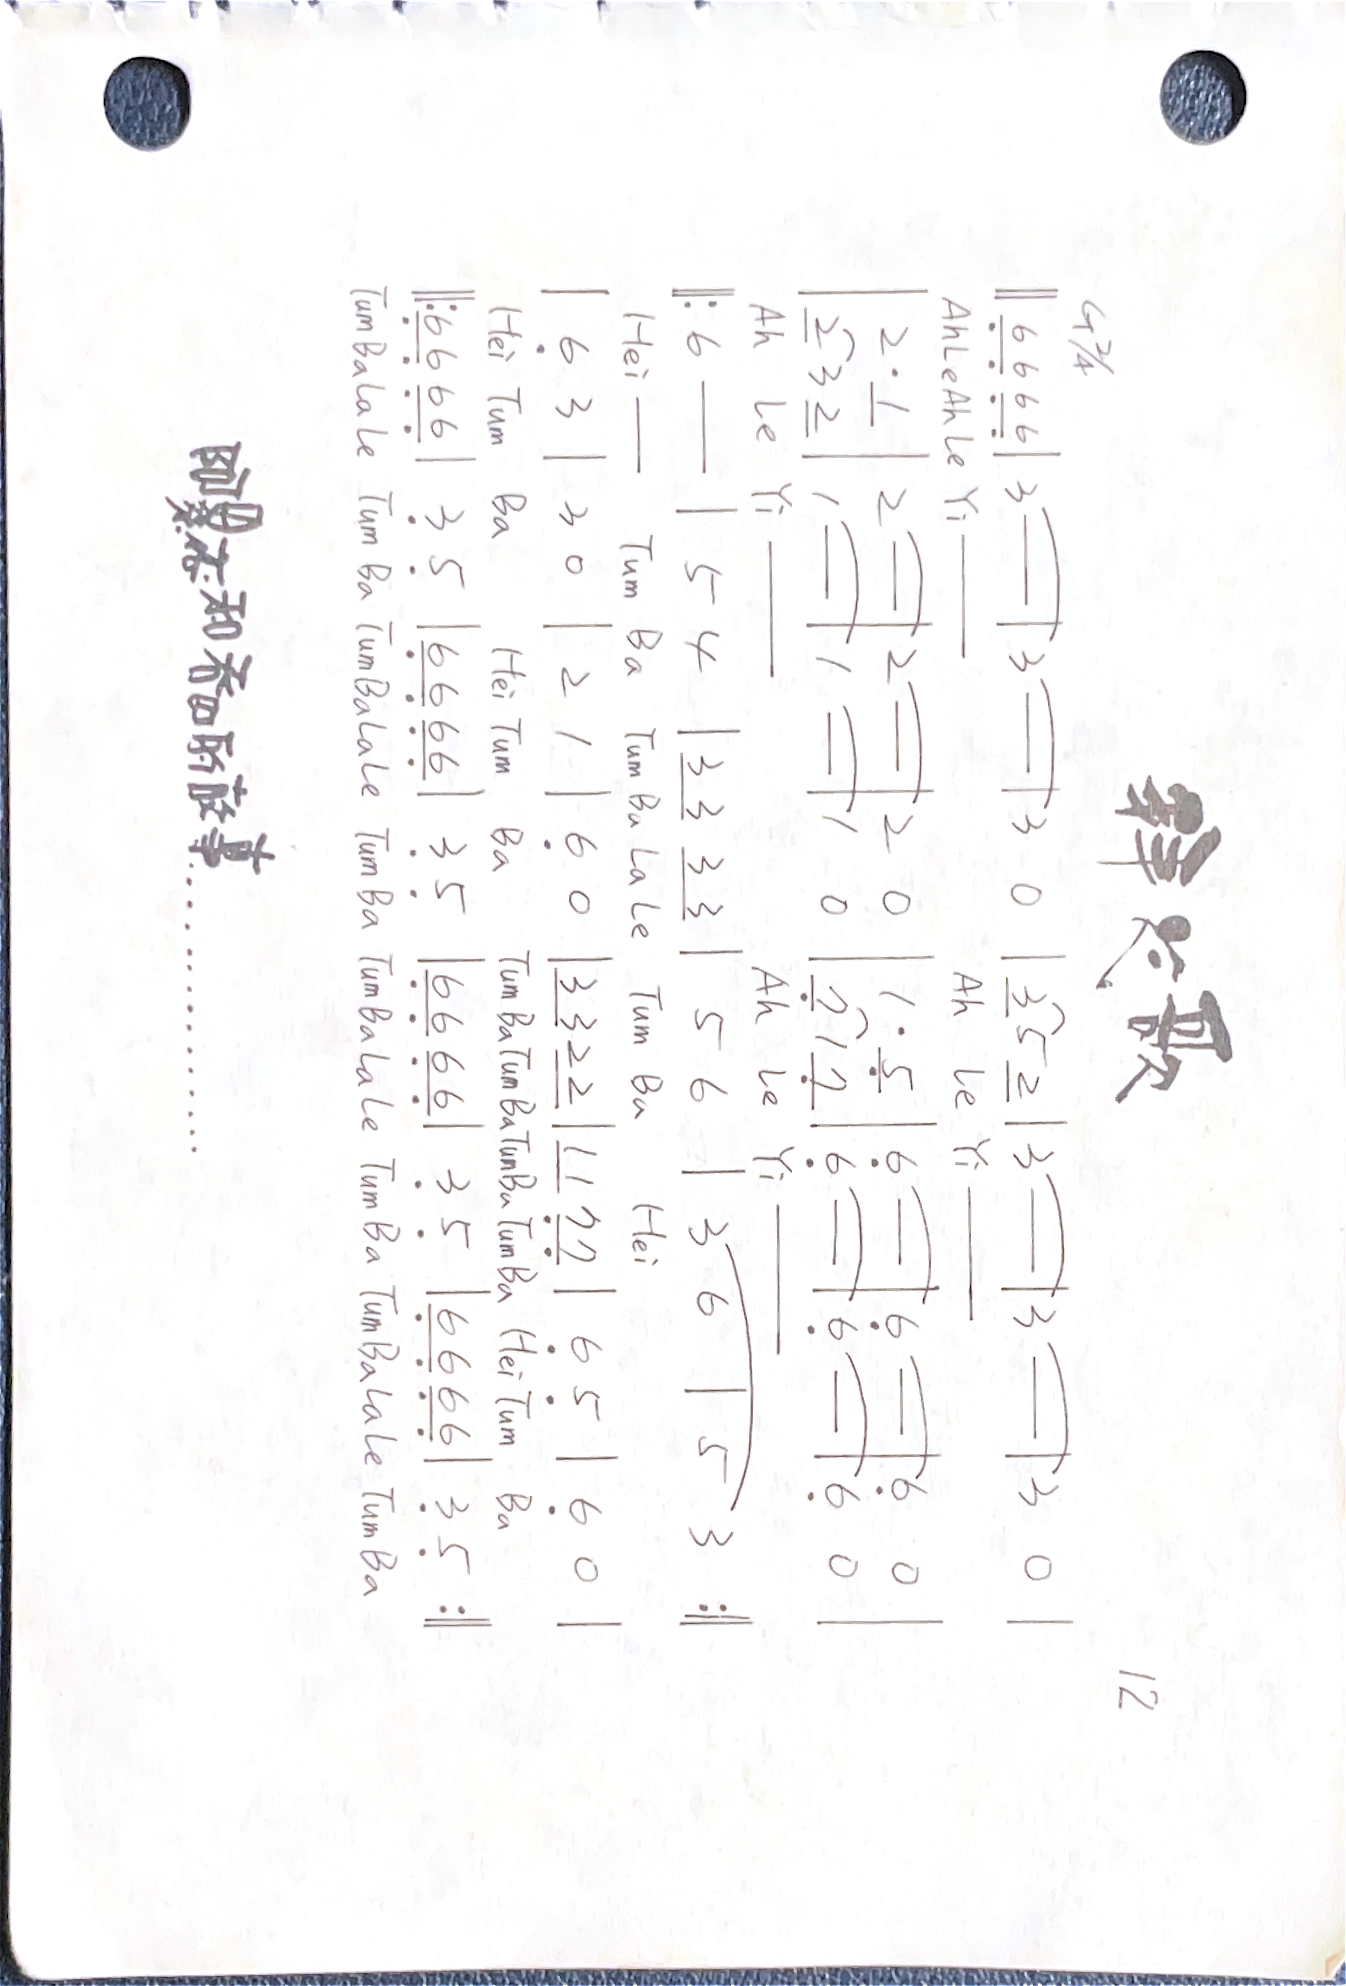 拜火歌
12
G 2/4
‖ 6̣ 6̣ 6̣ 6̣ | 3 — | 3 — | 3 0 | 3 5 2 | 3 — | 3 — | 3 0 |
Ah Le Ah Le Yi — Ah Le Yi —
| 2 · 1 | 2 — | 2 — | 2 0 | 1 · 5̣ | 6̣ — | 6̣ — | 6̣ 0 |
| 2 3 2 | 1 — | 1 — | 1 0 | 7̣ 1 7̣ | 6̣ — | 6̣ — | 6̣ 0 |
Ah Le Yi — Ah Le Yi —
‖: 6 — | 5 4 | 3 3 3 3 | 5 6 | 3 6 | 5 3 :‖
Hei — Tum Ba Tum Ba La Le Tum Ba Hei
| 6̣ 3 | 3 0 | 2 1 | 6̣ 0 | 3 3 2 2 | 1 1 7̣ 7̣ | 6̣ 5̣ | 6̣ 0 |
Hei Tum Ba Hei Tum Ba Tum Ba Tum Ba Tum Ba Tum Ba Hei Tum Ba
‖: 6̣ 6̣ 6̣ 6̣ | 3̣ 5̣ | 6̣ 6̣ 6̣ 6̣ | 3̣ 5̣ | 6̣ 6̣ 6̣ 6̣ | 3̣ 5̣ | 6̣ 6̣ 6̣ 6̣ | 3̣ 5̣ :‖
Tum Ba La Le Tum Ba Tum Ba La Le Tum Ba Tum Ba La Le Tum Ba Tum Ba La Le Tum Ba
和 的故事...............